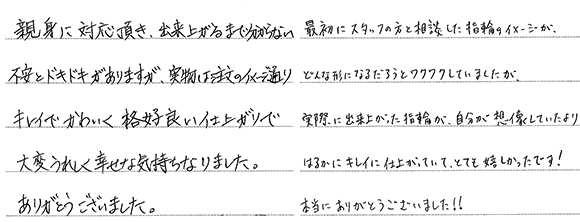 親身に対応頂き、出来上がるまで分からない
不安とドキドキがありますが、実物は注文のイメージ通り
キレイでかわいく格好良い仕上がりで
大変うれしく幸せな気持ちなりました。
ありがとうございました。
最初にスタッフの方と相談した指輪のイメージが、
どんな形になるだろうとワクワクしていましたが、
実際に出来上がった指輪が、自分が想像していたより
はるかにキレイに仕上がっていて、とても嬉しかったです!
本当にありがとうございました!!